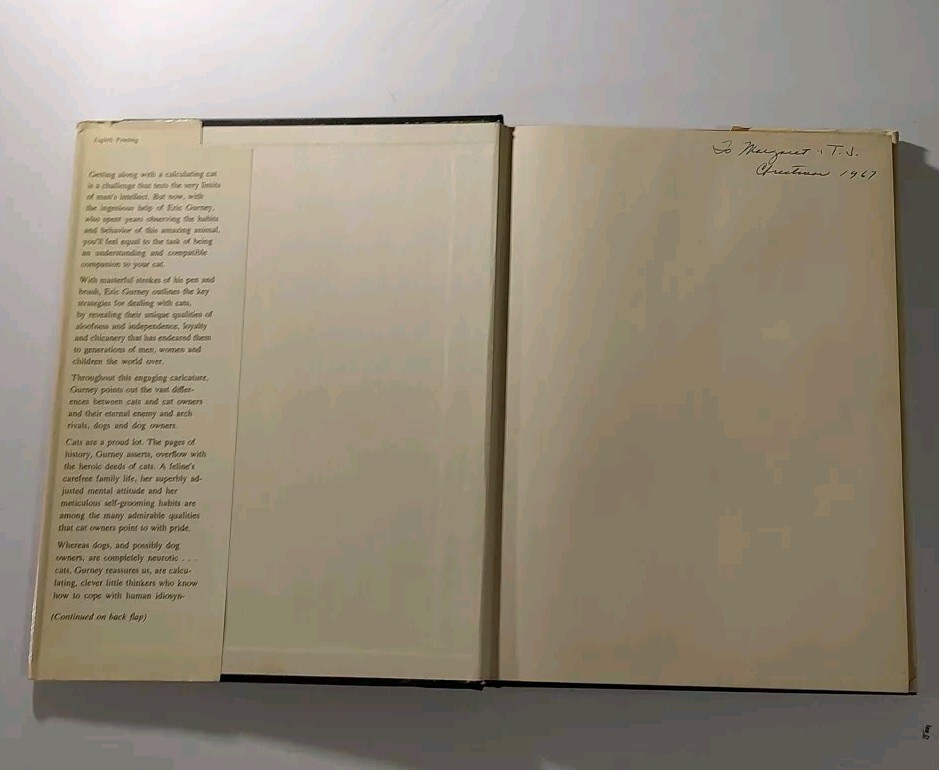 Eighth Printing
Getting along with a calculating cat
is a challenge that tests the very limits
of man's intellect. But now, with
the ingenious help of Eric Gurney,
who spent years observing the habits
and behavior of this amazing animal,
you'll feel equal to the task of being
an understanding and compatible
companion to your cat.
With masterful strokes of his pen and
brush, Eric Gurney outlines the key
strategies for dealing with cats,
by revealing their unique qualities of
aloofness and independence, loyalty
and chicanery that has endeared them
to generations of men, women and
children the world over.
Throughout this engaging caricature,
Gurney points out the vast differ-
ences between cats and cat owners
and their eternal enemy and arch
rivals, dogs and dog owners.
Cats are a proud lot. The pages of
history, Gurney asserts, overflow with
the heroic deeds of cats. A feline's
carefree family life, her superbly ad-
justed mental attitude and her
meticulous self-grooming habits are
among the many admirable qualities
that cat owners point to with pride.
Whereas dogs, and possibly dog
owners, are completely neurotic . . .
cats, Gurney reassures us, are calcu-
lating, clever little thinkers who know
how to cope with human idiosyn-
(Continued on back flap)
To Margaret & T.J.
Christmas 1967